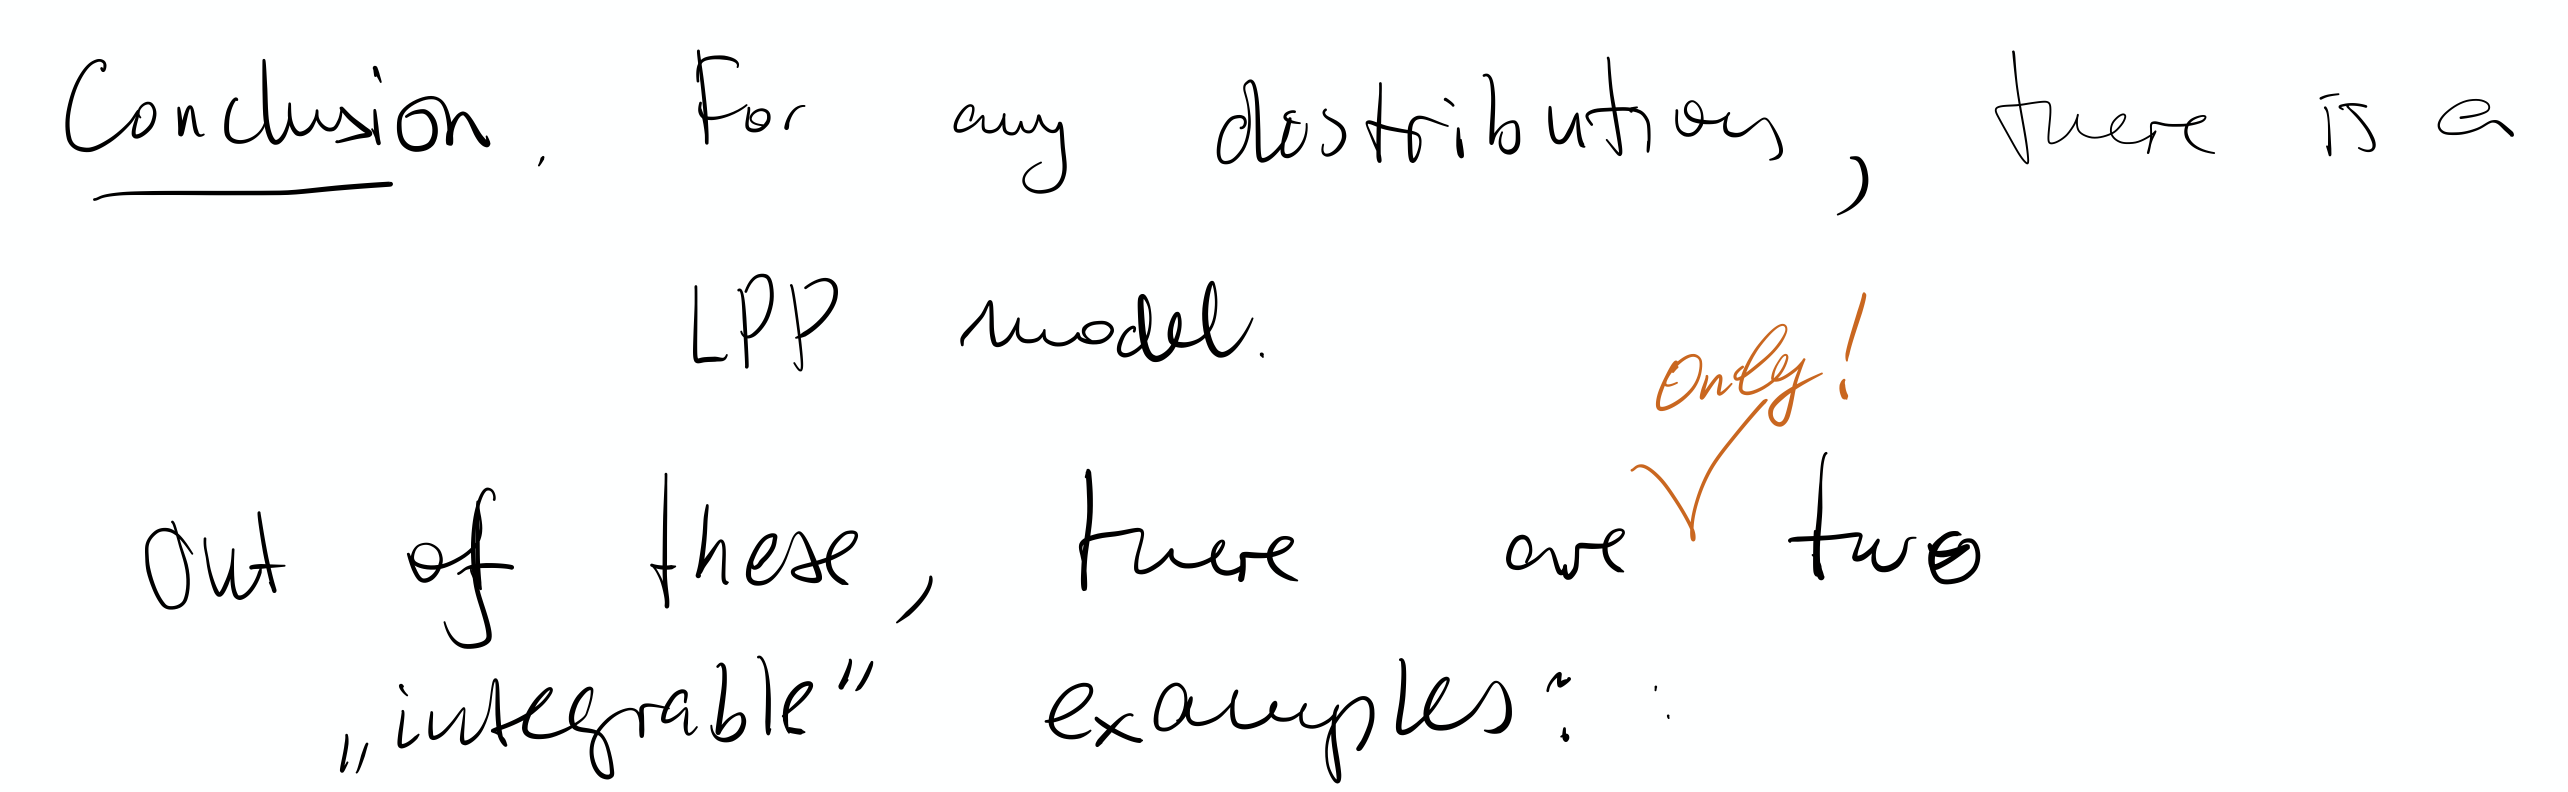 Conclusion. For any distribution, there is a
LPP model.
only!
Out of these, there are two
„integrable" examples: